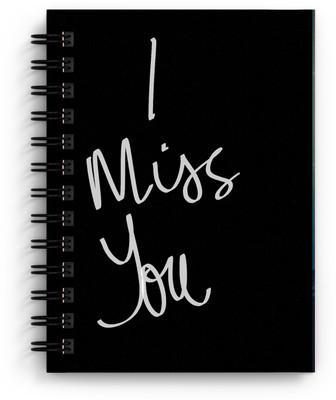 I
Miss
You